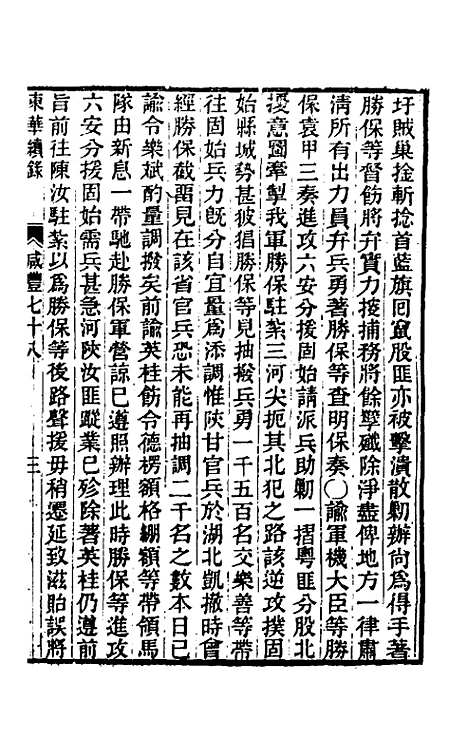 圩賊巢捦斬捻首藍旗囘竄股匪亦被擊潰散勦辦尙爲得手著
勝保等督飭將弁實力搜捕務將餘孽殲除淨盡俾地方一律肅
清所有出力員弁兵勇著勝保等查明保奏○諭軍機大臣等勝
保袁甲三奏進攻六安分援固始請派兵助勦一摺粵匪分股北
擾意圖牽掣我軍勝保駐紮三河尖扼其北犯之路該逆攻撲固
始縣城勢甚披猖勝保等見抽撥兵勇一千五百名交樂善等帶
往固始兵力旣分自宜量爲添調惟陝甘官兵於湖北凱撤時會
經勝保截畱見在該省官兵恐未能再抽調二千名之數本日已
諭令樂斌酌量調撥矣前諭英桂飭令德楞額格綳額等帶領馬
隊由新息一帶馳赴勝保軍營諒已遵照辦理此時勝保等進攻
六安分援固始需兵甚急河陝汝匪蹤業已殄除著英桂仍遵前
旨前往陳汝駐紮以爲勝保等後路聲援毋稍遷延致滋貽誤將
東華續錄　咸豐七十八　三